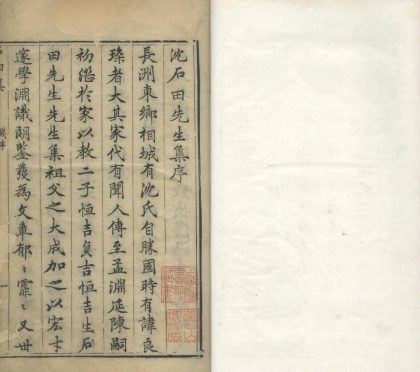 沈石田先生集序
長洲東鄉相城有沈氏自勝國時有諱良
琛者大其家代有聞人傳至孟淵延陳嗣
初徙於家以教二子恒吉貞吉恒吉生石
田先生先生集祖父之大成加之以宏才
邃學淵識朗鑒發為文章郁〻霏〻又世